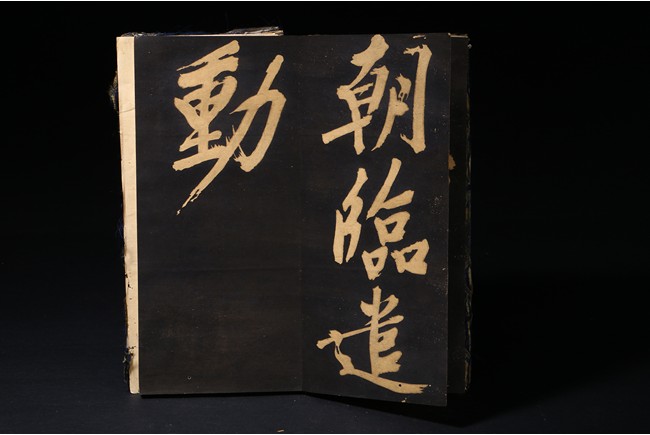 朝臨遣
動